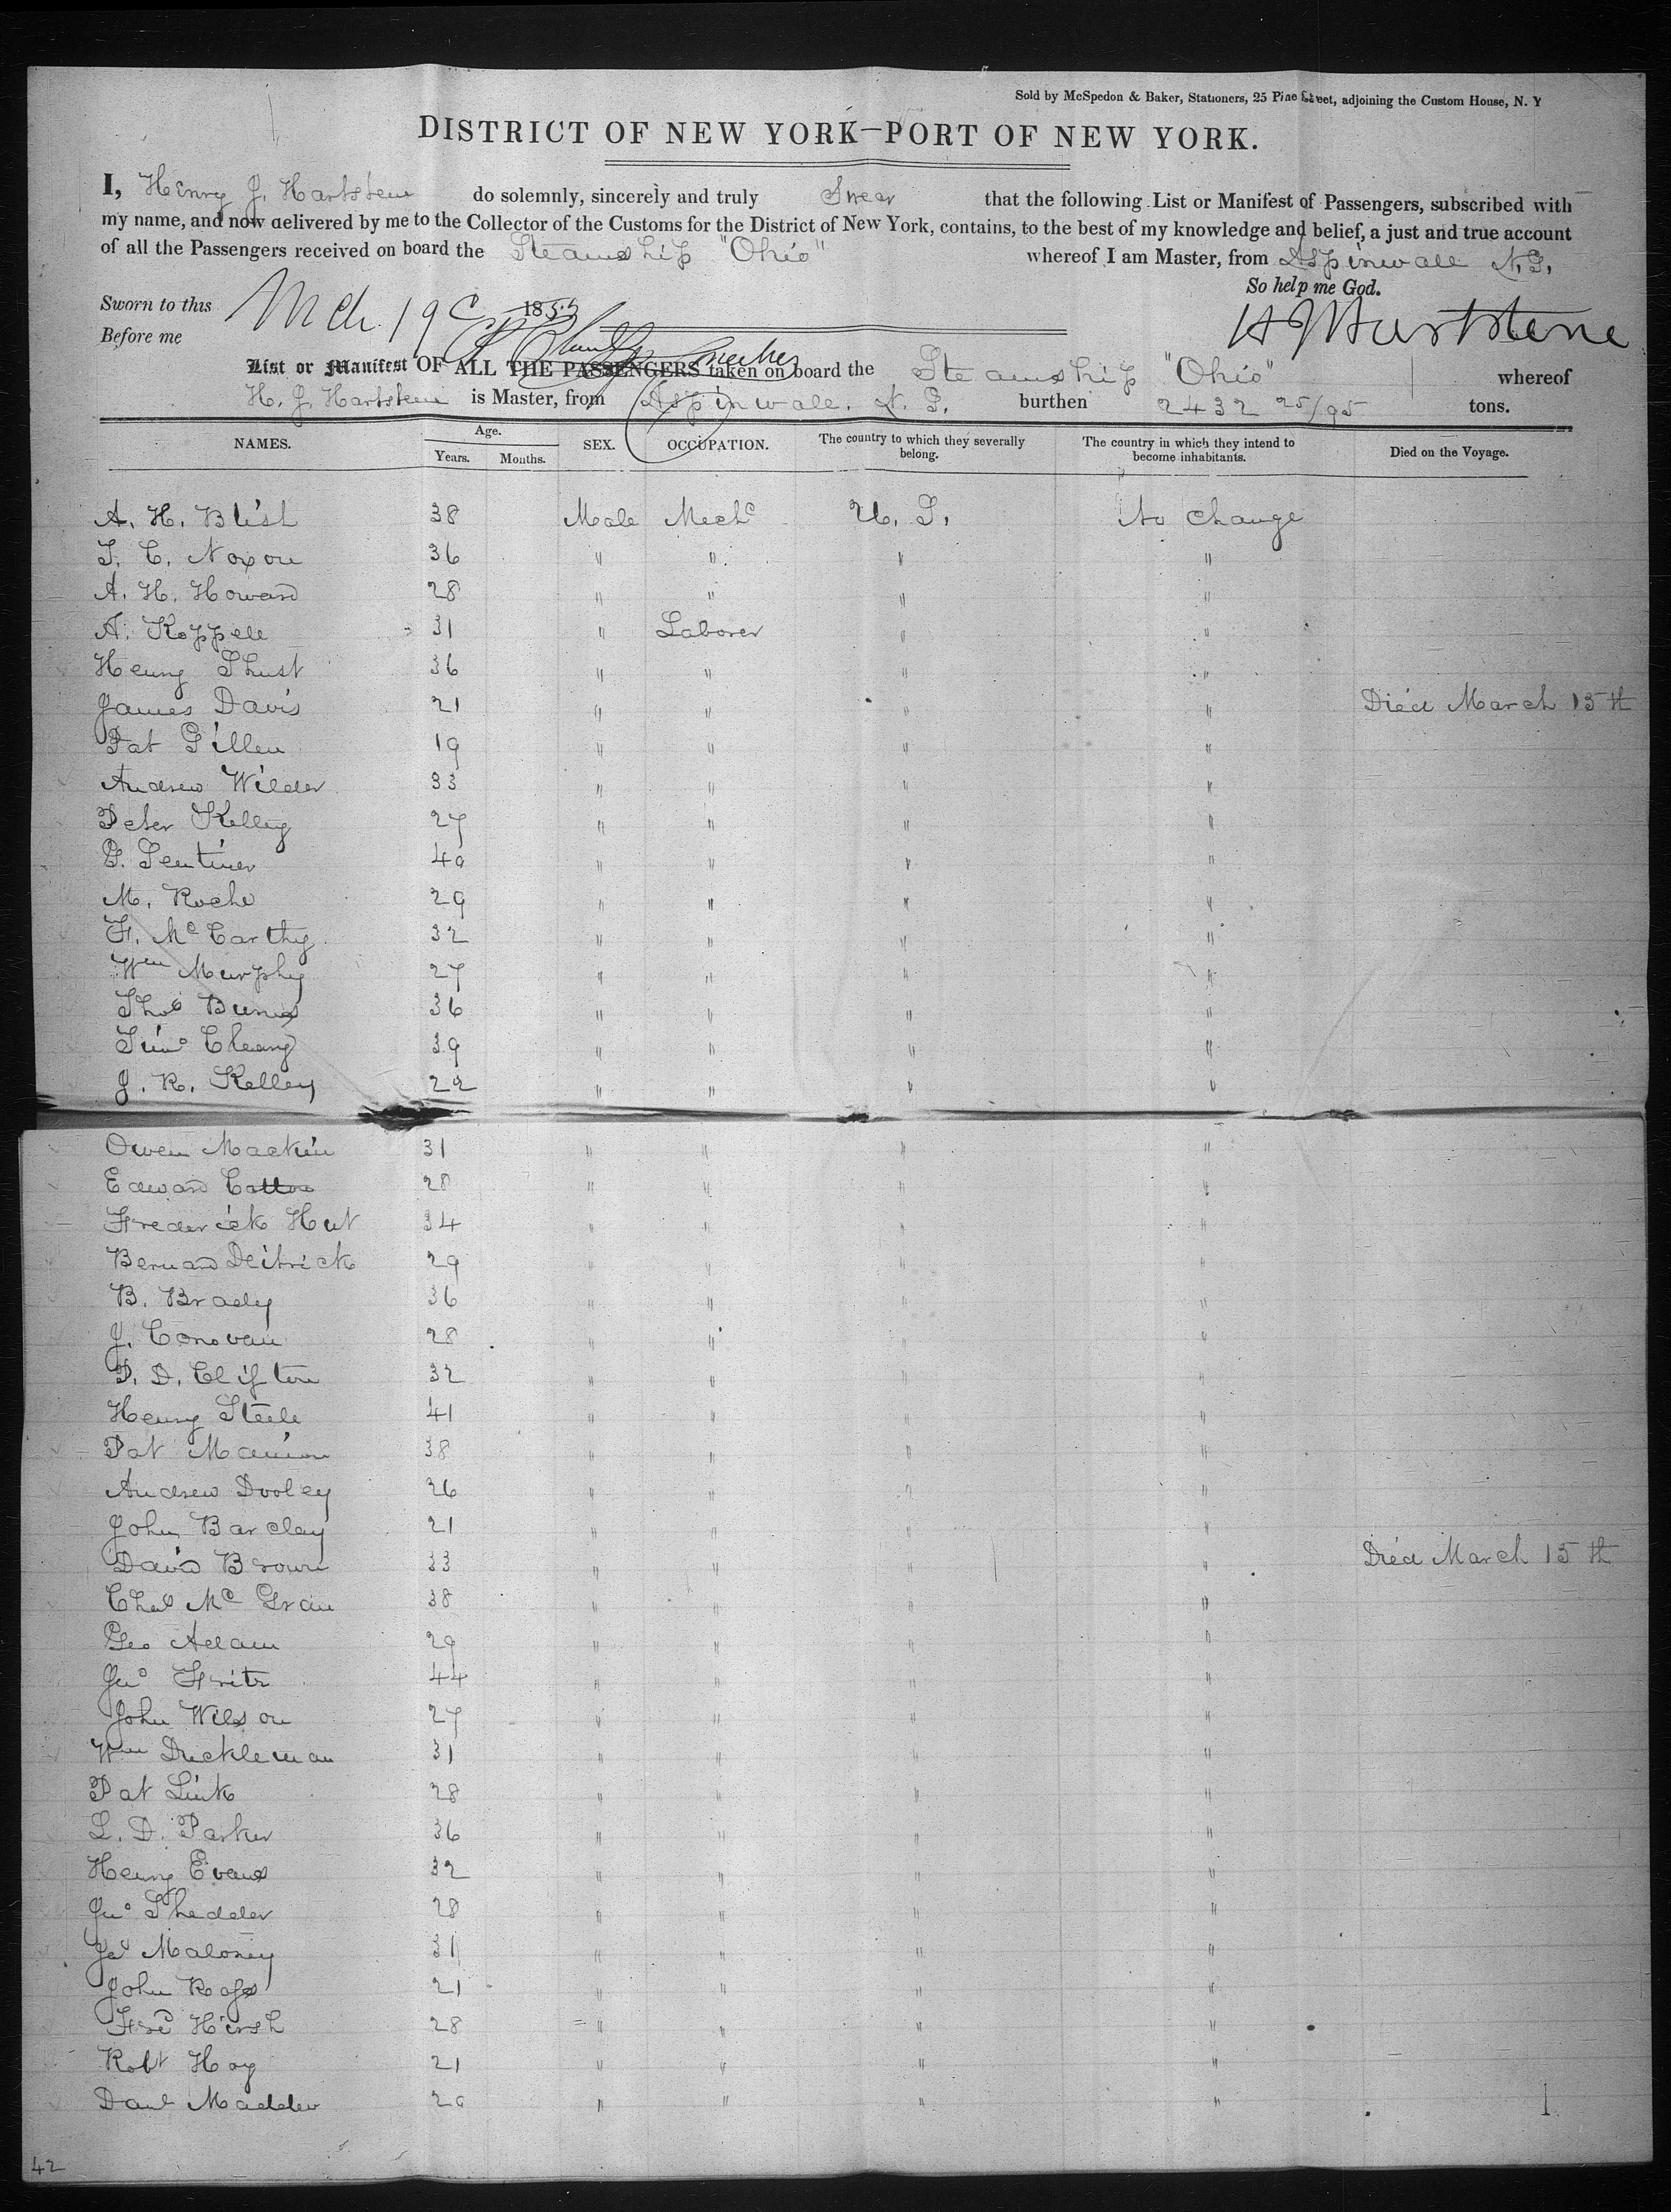 Sold by McSpedon & Baker, Stationers, 25 Pine Street, adjoining the Custom House, N. Y
DISTRICT OF NEW YORK—PORT OF NEW YORK.
I, Henry J. Hartstene do solemnly, sincerely and truly Swear that the following List or Manifest of Passengers, subscribed with
my name, and now delivered by me to the Collector of the Customs for the District of New York, contains, to the best of my knowledge and belief, a just and true account
of all the Passengers received on board the Steamship "Ohio" whereof I am Master, from Aspinwall N.G.
So help me God.
Sworn to this Mch. 19 1853
H J Hartstene
Before me
List or Manifest OF ALL THE PASSENGERS taken on board the Steamship "Ohio" whereof
H. J. Hartstene is Master, from Aspinwall. N. G. burthen 2432 25/95 tons.
NAMES. Age. Years. Months. SEX. OCCUPATION. The country to which they severally belong. The country in which they intend to become inhabitants. Died on the Voyage.
A. H. Blish 38 Male Mechc U. S. No Change
S. C. Noxon 36 " " " "
A. H. Howard 28 " " " "
A. Koppell 31 " Laborer " "
Henry Shust 36 " " " "
James Davis 21 " " " " Died March 15th
Pat Gillen 19 " " " "
Andrew Wilder 33 " " " "
Peter Kelley 27 " " " "
G. Sentiner 40 " " " "
M. Roche 29 " " " "
F. McCarthy 32 " " " "
Wm Murphy 27 " " " "
Thos Burns 36 " " " "
Timo Cleary 39 " " " "
J. R. Kelley 22 " " " "
Owen Mackin 31 " " " "
Edward Cotton 28 " " " "
Frederick Hut 34 " " " "
Bernard Deitrick 29 " " " "
B. Brady 36 " " " "
J. Conovan 28 " " " "
P. D. Clifton 32 " " " "
Henry Steele 41 " " " "
Pat Manion 38 " " " "
Andrew Dooley 26 " " " "
John Barclay 21 " " " "
David Brown 33 " " " " Died March 15th
Chas McGran 38 " " " "
Geo Adam 29 " " " "
Jno Fritz 44 " " " "
John Wilson 27 " " " "
Wm Duckleman 31 " " " "
Pat Link 28 " " " "
L. D. Parker 36 " " " "
Henry Evans 32 " " " "
Jno Shedder 28 " " " "
Jas Maloney 31 " " " "
John Ross 21 " " " "
Fred Hirsh 28 " " " "
Robt Hoy 21 " " " "
Danl Madden 20 " " " "
42